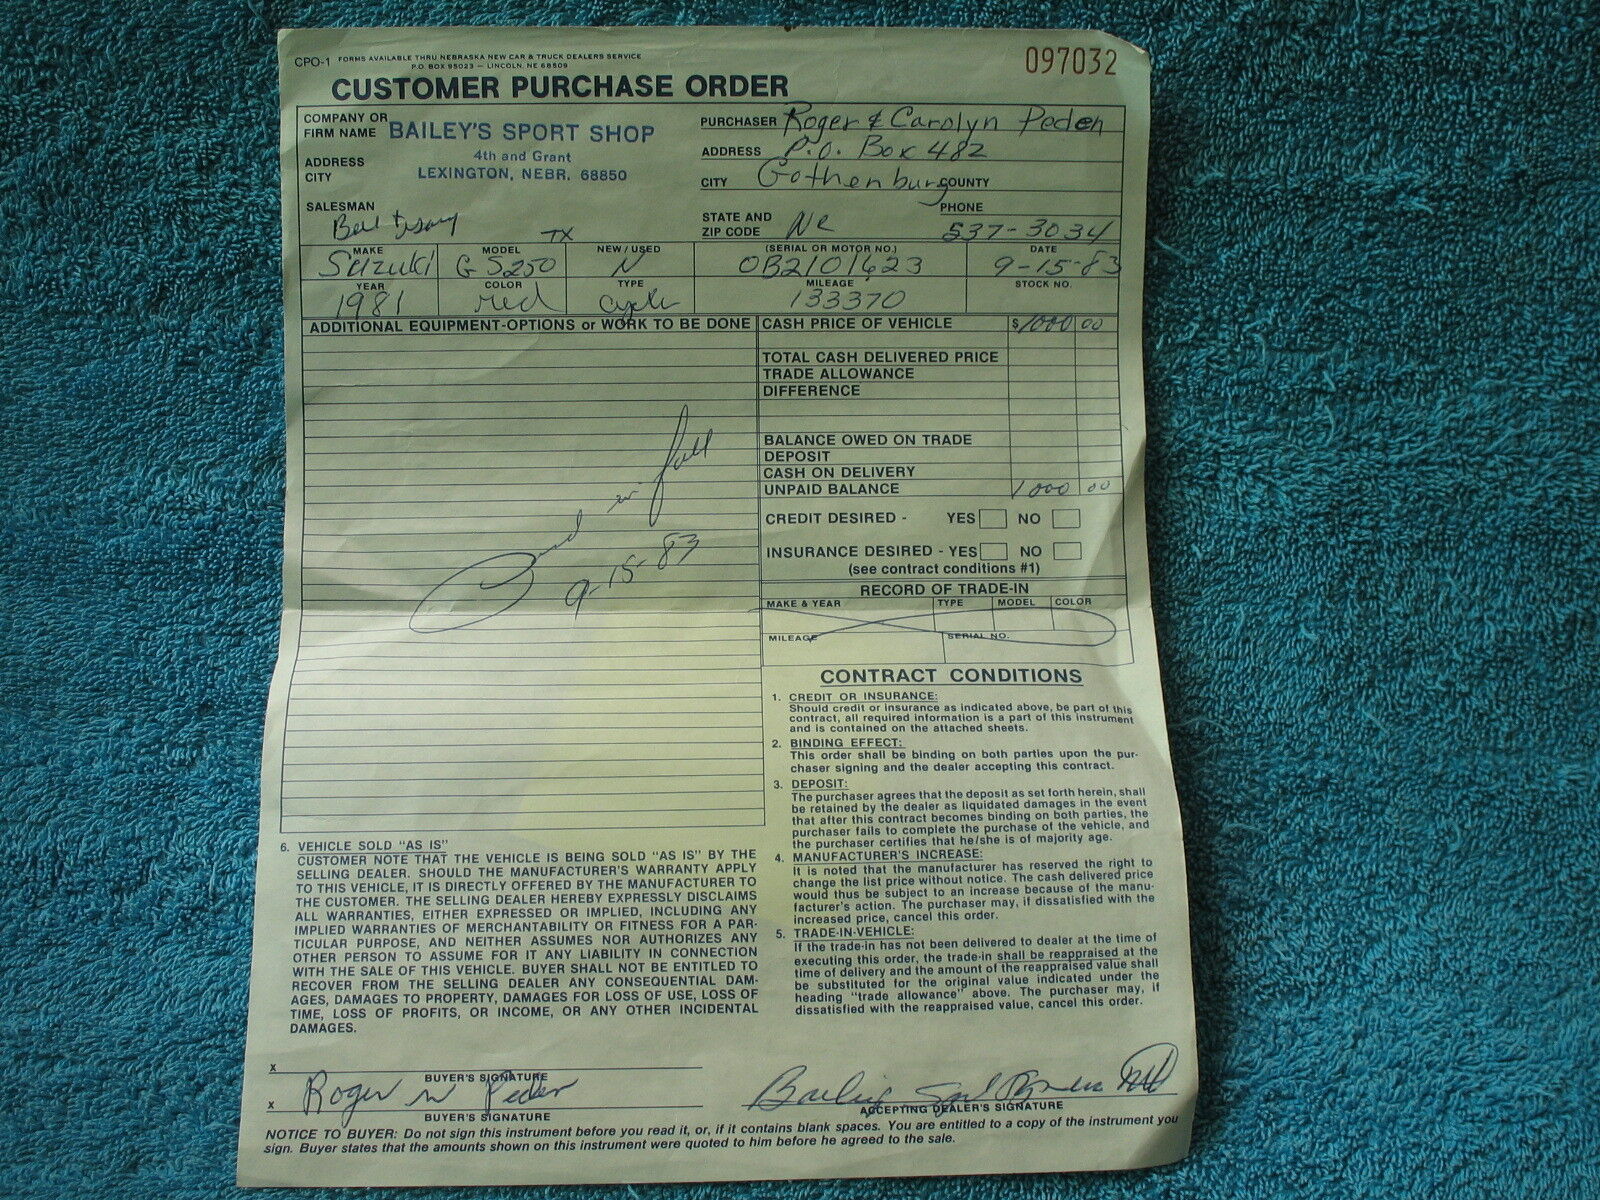 CPO-1 FORMS AVAILABLE THRU NEBRASKA NEW CAR & TRUCK DEALERS SERVICE
P.O. BOX 95023 — LINCOLN, NE 68509
097032
CUSTOMER PURCHASE ORDER
COMPANY OR
FIRM NAME BAILEY'S SPORT SHOP
ADDRESS 4th and Grant
CITY LEXINGTON, NEBR. 68850
SALESMAN
PURCHASER Roger & Carolyn Peden
ADDRESS P.O. Box 482
CITY Gothenburg COUNTY
STATE AND
ZIP CODE Ne
PHONE
537-3034
MAKE Suzuki
MODEL GS250 TX
NEW / USED N
(SERIAL OR MOTOR NO.) 0B2101623
DATE 9-15-83
YEAR 1981
COLOR red
TYPE cycle
MILEAGE 133370
STOCK NO.
ADDITIONAL EQUIPMENT-OPTIONS or WORK TO BE DONE
Paid in full
9-15-83
CASH PRICE OF VEHICLE $ 1000 00
TOTAL CASH DELIVERED PRICE
TRADE ALLOWANCE
DIFFERENCE
BALANCE OWED ON TRADE
DEPOSIT
CASH ON DELIVERY
UNPAID BALANCE 1000 00
CREDIT DESIRED - YES NO
INSURANCE DESIRED - YES NO
(see contract conditions #1)
RECORD OF TRADE-IN
MAKE & YEAR TYPE MODEL COLOR
MILEAGE SERIAL NO.
CONTRACT CONDITIONS
1. CREDIT OR INSURANCE:
Should credit or insurance as indicated above, be part of this
contract, all required information is a part of this instrument
and is contained on the attached sheets.
2. BINDING EFFECT:
This order shall be binding on both parties upon the pur-
chaser signing and the dealer accepting this contract.
3. DEPOSIT:
The purchaser agrees that the deposit as set forth herein, shall
be retained by the dealer as liquidated damages in the event
that after this contract becomes binding on both parties, the
purchaser fails to complete the purchase of the vehicle, and
the purchaser certifies that he/she is of majority age.
4. MANUFACTURER'S INCREASE:
It is noted that the manufacturer has reserved the right to
change the list price without notice. The cash delivered price
would thus be subject to an increase because of the manu-
facturer's action. The purchaser may, if dissatisfied with the
increased price, cancel this order.
5. TRADE-IN-VEHICLE:
If the trade-in has not been delivered to dealer at the time of
executing this order, the trade-in shall be reappraised at the
time of delivery and the amount of the reappraised value shall
be substituted for the original value indicated under the
heading "trade allowance" above. The purchaser may, if
dissatisfied with the reappraised value, cancel this order.
6. VEHICLE SOLD "AS IS"
CUSTOMER NOTE THAT THE VEHICLE IS BEING SOLD "AS IS" BY THE
SELLING DEALER. SHOULD THE MANUFACTURER'S WARRANTY APPLY
TO THIS VEHICLE, IT IS DIRECTLY OFFERED BY THE MANUFACTURER TO
THE CUSTOMER. THE SELLING DEALER HEREBY EXPRESSLY DISCLAIMS
ALL WARRANTIES, EITHER EXPRESSED OR IMPLIED, INCLUDING ANY
IMPLIED WARRANTIES OF MERCHANTABILITY OR FITNESS FOR A PAR-
TICULAR PURPOSE, AND NEITHER ASSUMES NOR AUTHORIZES ANY
OTHER PERSON TO ASSUME FOR IT ANY LIABILITY IN CONNECTION
WITH THE SALE OF THIS VEHICLE. BUYER SHALL NOT BE ENTITLED TO
RECOVER FROM THE SELLING DEALER ANY CONSEQUENTIAL DAM-
AGES, DAMAGES TO PROPERTY, DAMAGES FOR LOSS OF USE, LOSS OF
TIME, LOSS OF PROFITS, OR INCOME, OR ANY OTHER INCIDENTAL
DAMAGES.
x
BUYER'S SIGNATURE
x Roger W Peden
BUYER'S SIGNATURE
ACCEPTING DEALER'S SIGNATURE
NOTICE TO BUYER: Do not sign this instrument before you read it, or, if it contains blank spaces. You are entitled to a copy of the instrument you
sign. Buyer states that the amounts shown on this instrument were quoted to him before he agreed to the sale.